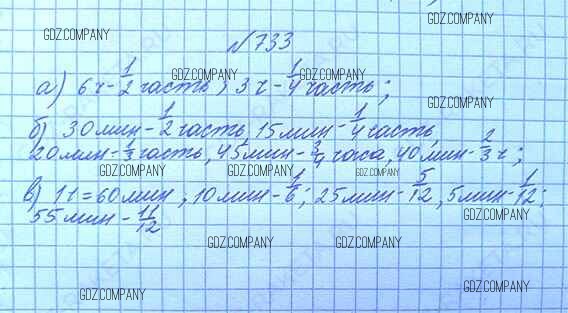 GDZ.COMPANY
№733
GDZ.COMPANY
а) 6ч-1/2 часть, 3ч-1/4 часть;
GDZ.COMPANY GDZ.COMPANY
GDZ.COMPANY
б) 30мин-1/2 часть, 15мин-1/4 часть,
20мин-1/3 часть, 45мин-3/4 часа, 40мин-2/3 ч;
GDZ.COMPANY GDZ.COMPANY GDZ.COMPANY
в) 1ч=60мин, 10мин-1/6; 25мин-5/12, 5мин-1/12;
55мин-11/12
GDZ.COMPANY
GDZ.COMPANY GDZ.COMPANY
GDZ.COMPANY